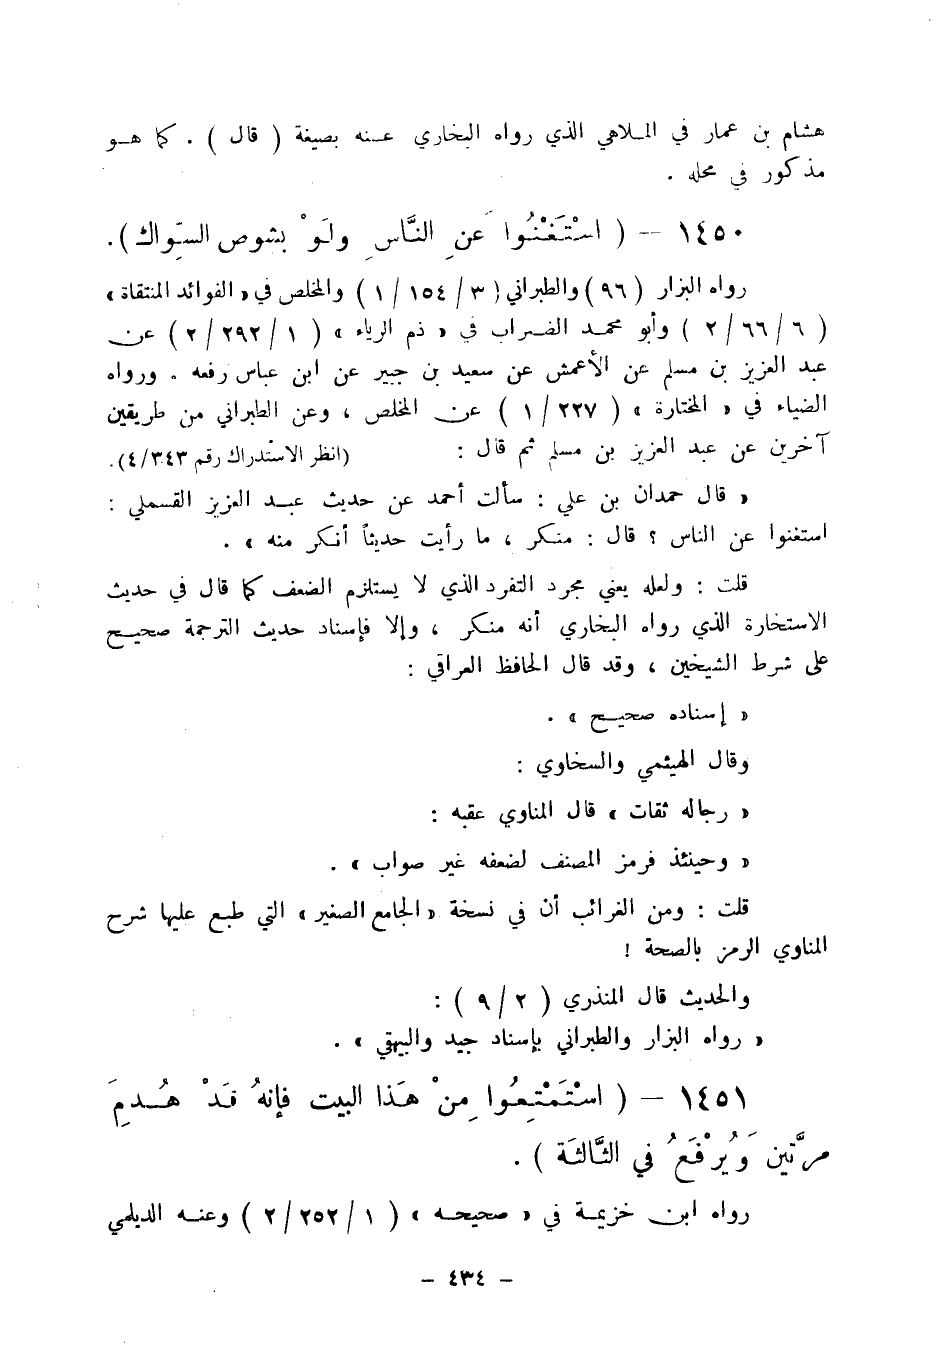 هشام بن عمار في الملاهي الذي رواه البخاري عنه بصيغة ( قال ) . كما هو
مذكور في محله .
١٤٥٠ – ( اسْتَغْنُوا عَنِ النَّاسِ ولَوْ بشوصِ السِّواك ) .
رواه البزار ( ٩٦ ) والطبراني ( ٣ / ١٥٤ / ١ ) والمخلص في « الفوائد المنتقاة »
( ٦ / ٦٦ / ٢ ) وأبو محمد الضراب في « ذم الرياء » ( ١ / ٢٩٢ / ٢ ) عن
عبد العزيز بن مسلم عن الأعمش عن سعيد بن جبير عن ابن عباس رفعه . ورواه
الضياء في « المختارة » ( ٢٢٧ / ١ ) عن المخلص ، وعن الطبراني من طريقين
آخرين عن عبد العزيز بن مسلم ثم قال : (انظر الاستدراك رقم ٤/٣٤٣).
« قال حمدان بن علي : سألت أحمد عن حديث عبد العزيز القسملي :
استغنوا عن الناس ؟ قال : منكر ، ما رأيت حديثاً أنكر منه » .
قلت : ولعله يعني مجرد التفرد الذي لا يستلزم الضعف كما قال في حديث
الاستخارة الذي رواه البخاري أنه منكر ، وإلا فإسناد حديث الترجمة صحيح
على شرط الشيخين ، وقد قال الحافظ العراقي :
« إسناده صحيح » .
وقال الهيثمي والسخاوي :
« رجاله ثقات » قال المناوي عقبه :
« وحينئذ فرمز المصنف لضعفه غير صواب » .
قلت : ومن الغرائب أن في نسخة « الجامع الصغير » التي طبع عليها شرح
المناوي الرمز بالصحة !
والحديث قال المنذري ( ٢ / ٩ ) :
« رواه البزار والطبراني بإسناد جيد والبيهقي » .
١٤٥١ – ( اسْتَمْتِعُوا مِنْ هَذا البيت فإنهُ قَدْ هُدِمَ
مرَّتين وَيُرْفَعُ في الثَّالثَة ) .
رواه ابن خزيمة في « صحيحه » ( ١ / ٢٥٢ / ٢ ) وعنه الديلمي
– ٤٣٤ –